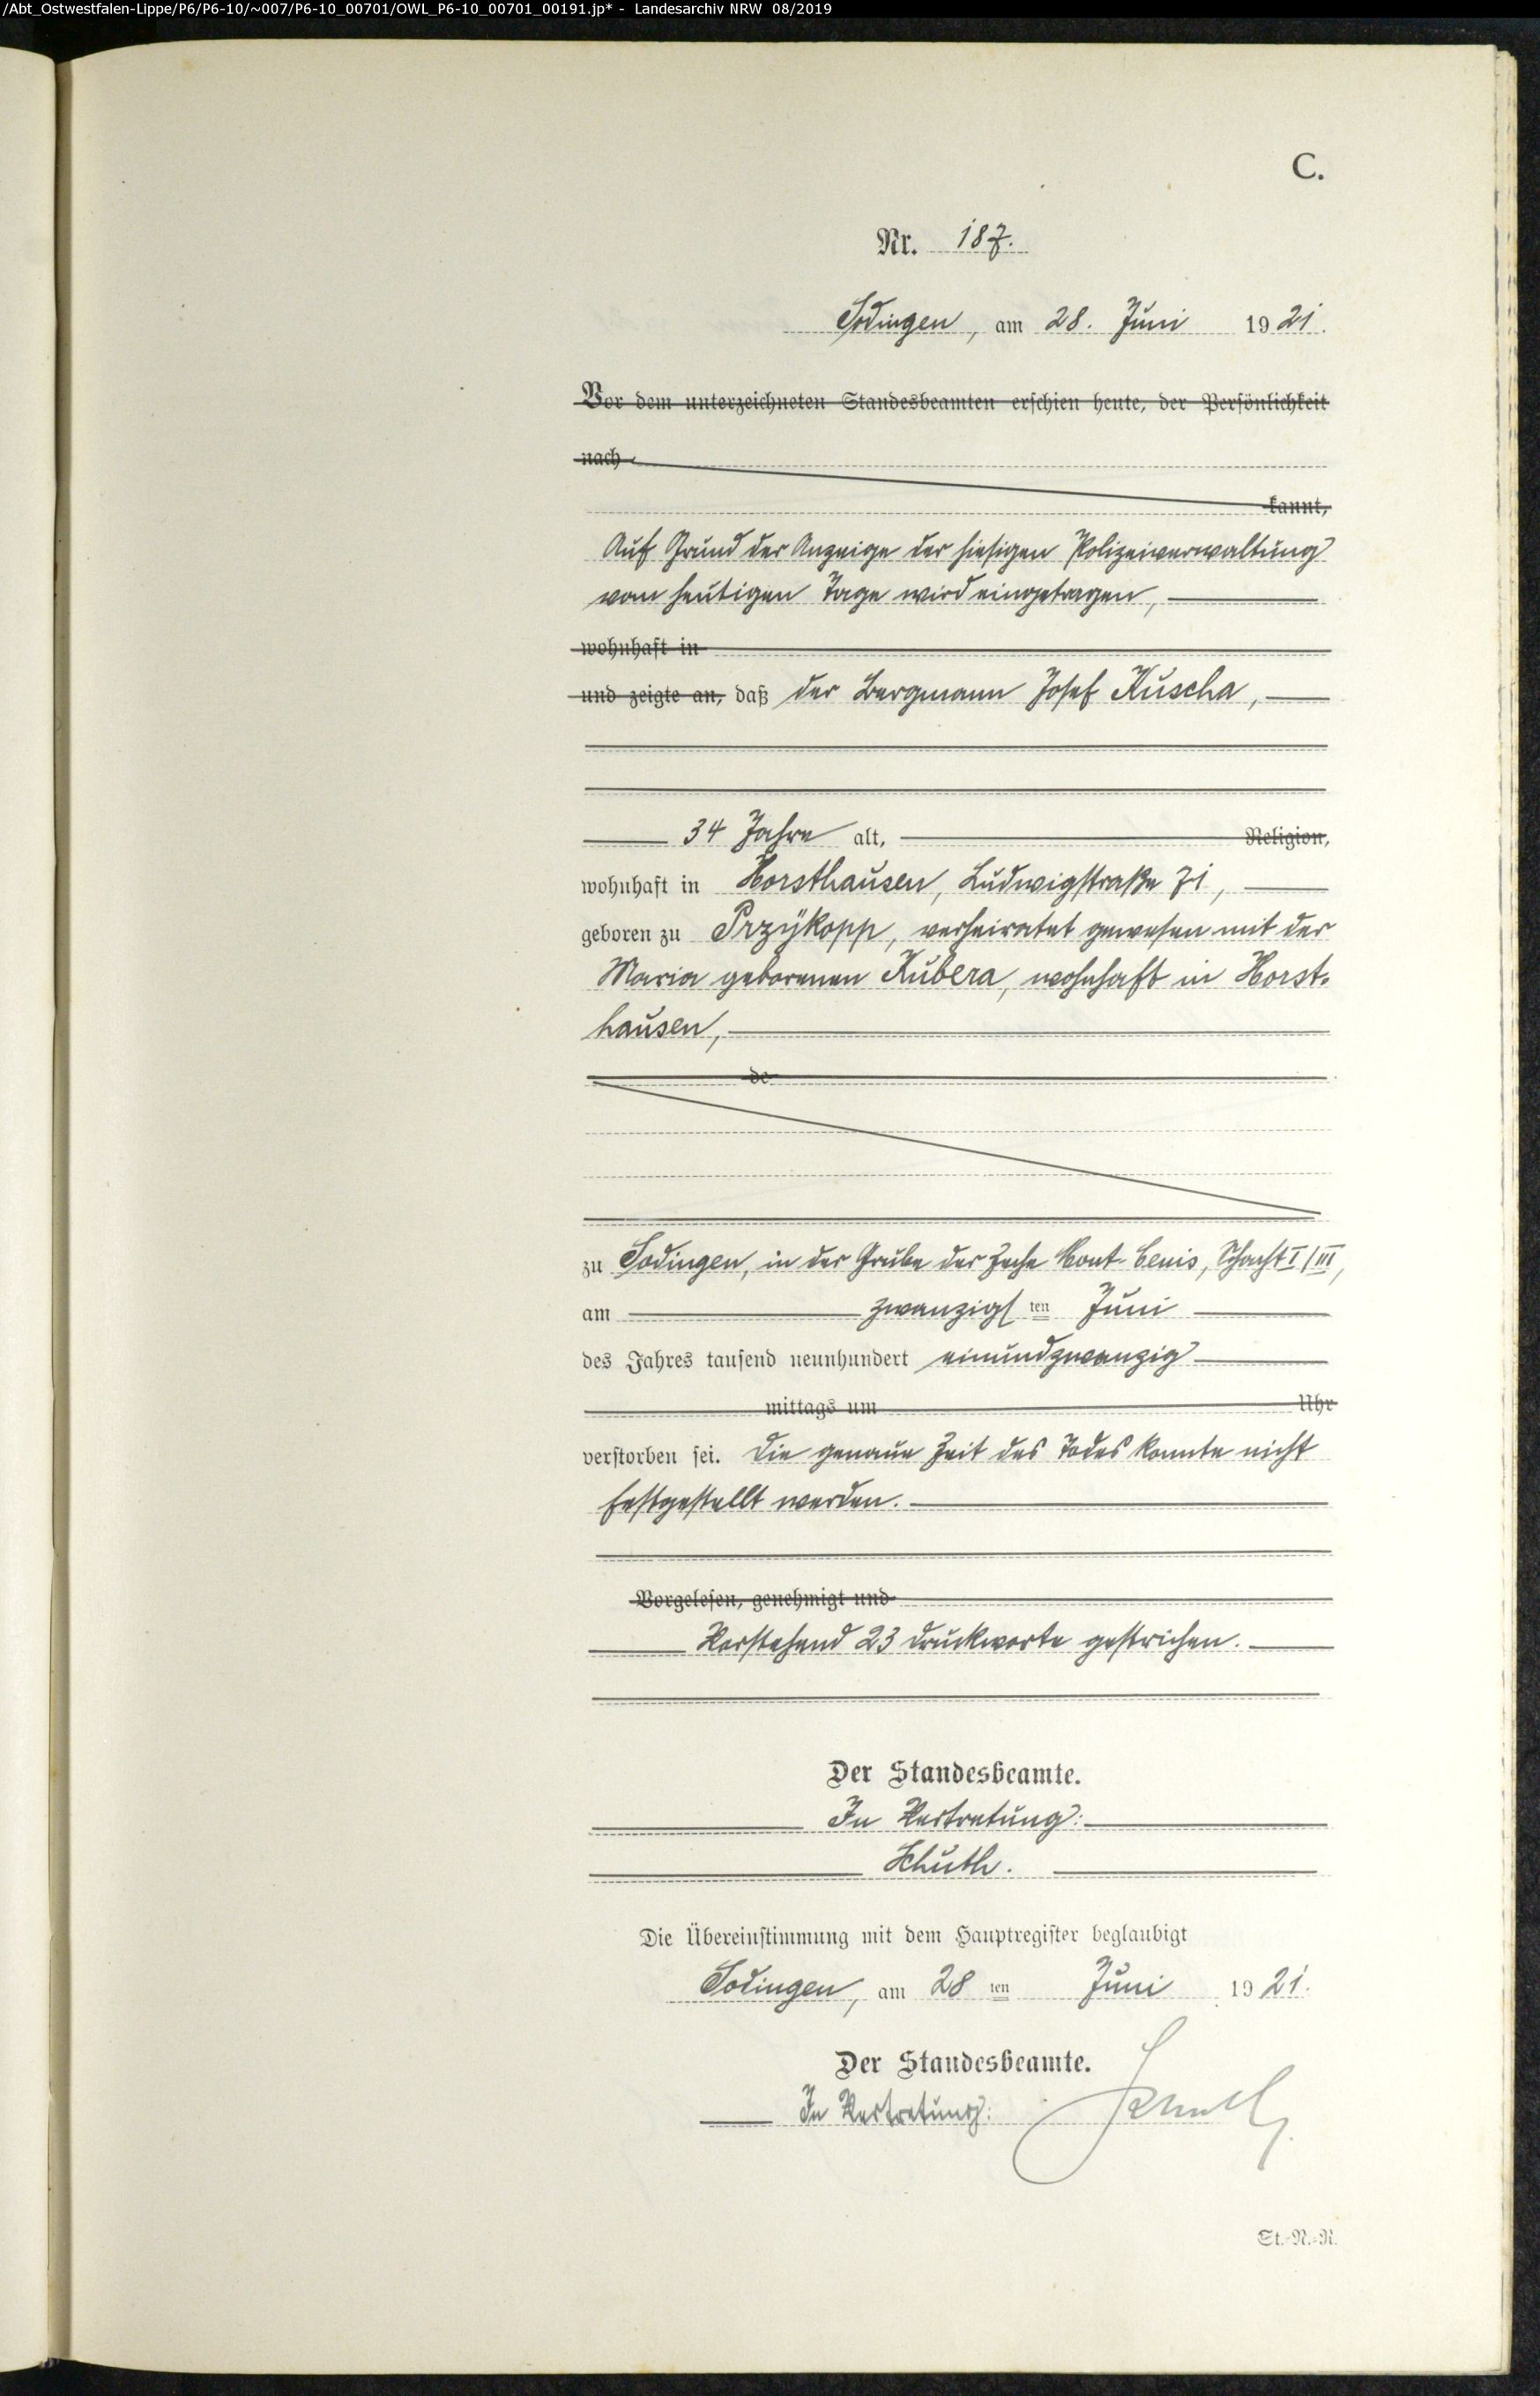 /Abt_Ostwestfalen-Lippe/P6/P6-10/~007/P6-10_00701/OWL_P6-10_00701_00191.jp* - Landesarchiv NRW 08/2019
C.
Nr. 187.
Sodingen, am 28. Juni 1921.
Vor dem unterzeichneten Standesbeamten erschien heute, der Persönlichkeit
nach
kannt,
Auf Grund der Anzeige der hiesigen Polizeiverwaltung
vom heutigen Tage wird eingetragen,
wohnhaft in
und zeigte an, daß der Bergmann Josef Kuscha,
34 Jahre alt, Religion,
wohnhaft in Horsthausen, Ludwigstraße 71,
geboren zu Przykopp, verheiratet gewesen mit der
Maria geborenen Kubera, wohnhaft in Horst-
hausen,
de
zu Sodingen, in der Grube der Zeche Mont-Cenis, Schacht I/III,
am zwanzigsten Juni
des Jahres tausend neunhundert einundzwanzig
mittags um Uhr
verstorben sei. Die genaue Zeit des Todes konnte nicht
festgestellt werden.
Vorgelesen, genehmigt und
Vorstehend 23 Druckworte gestrichen.
Der Standesbeamte.
In Vertretung:
Schuth.
Die Übereinstimmung mit dem Hauptregister beglaubigt
Sodingen, am 28ten Juni 1921.
Der Standesbeamte.
In Vertretung: Schuth
St.-N.-R.